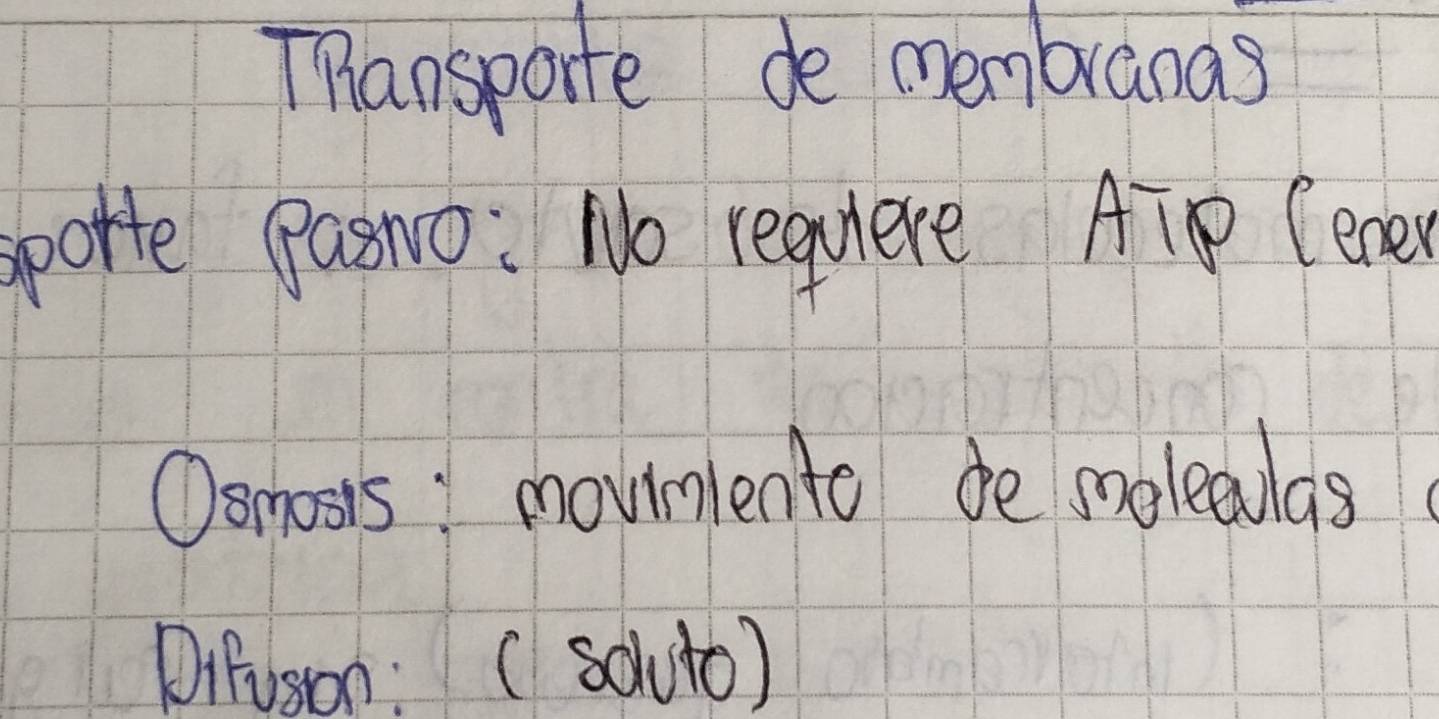 TRansporte de membranas
sporte Pasivo: No requiere ATP (ener
Osmosis: movimiento de moleculas
Difusion: (soluto)